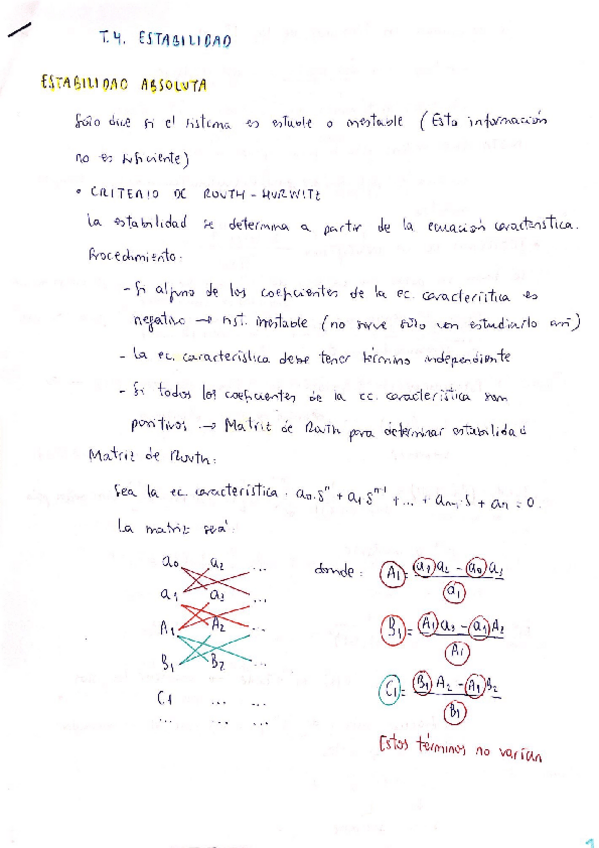 T.4. ESTABILIDAD
ESTABILIDAD ABSOLUTA
Sólo dice si el sistema es estable o inestable (Esta información
no es suficiente)
• CRITERIO DE ROUTH-HURWITZ
La estabilidad se determina a partir de la ecuación característica.
Procedimiento:
- Si alguno de los coeficientes de la ec. característica es
negativo → sist. inestable (no sirve sólo con estudiarlo así)
- La ec. característica debe tener término independiente
- Si todos los coeficientes de la ec. característica son
positivos → Matriz de Routh para determinar estabilidad
Matriz de Routh:
Sea la ec. característica: a₀·sⁿ + a₁ sⁿ⁻¹ + ... + aₙ₋₁·s + aₙ = 0.
La matriz será:
a₀ a₂ ...
a₁ a₃ ...
A₁ A₂ ...
B₁ B₂ ...
C₁ ... ...
... ... ...
donde: A₁ = (a₁a₂ - a₀a₃) / a₁
B₁ = (A₁a₃ - a₁A₂) / A₁
C₁ = (B₁A₂ - A₁B₂) / B₁
Estos términos no varían
1